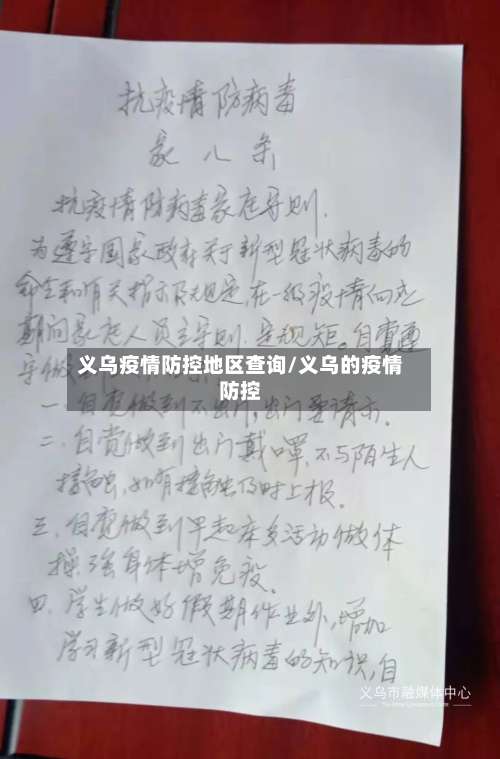 抗疫情防病毒
家八条
抗疫情防病毒家庭守则.
为遵守国家政府关于新型冠状病毒的
命令和有关指示及规定,在一级疫情响应
期间家庭人员主守则,守规矩。自觉遵
守做
义乌疫情防控地区查询/义乌的疫情
防控
一.自觉做到不出门,出门要请示.
二.自觉做到出门戴口罩,不与陌生人
接触,如有接触及时上报.
三.自觉做到早起床多活动做体
操,强身体增免疫.
四.学生做好假期作业外,增加
学习新型冠状病毒的知识,自
义乌市融媒体中心